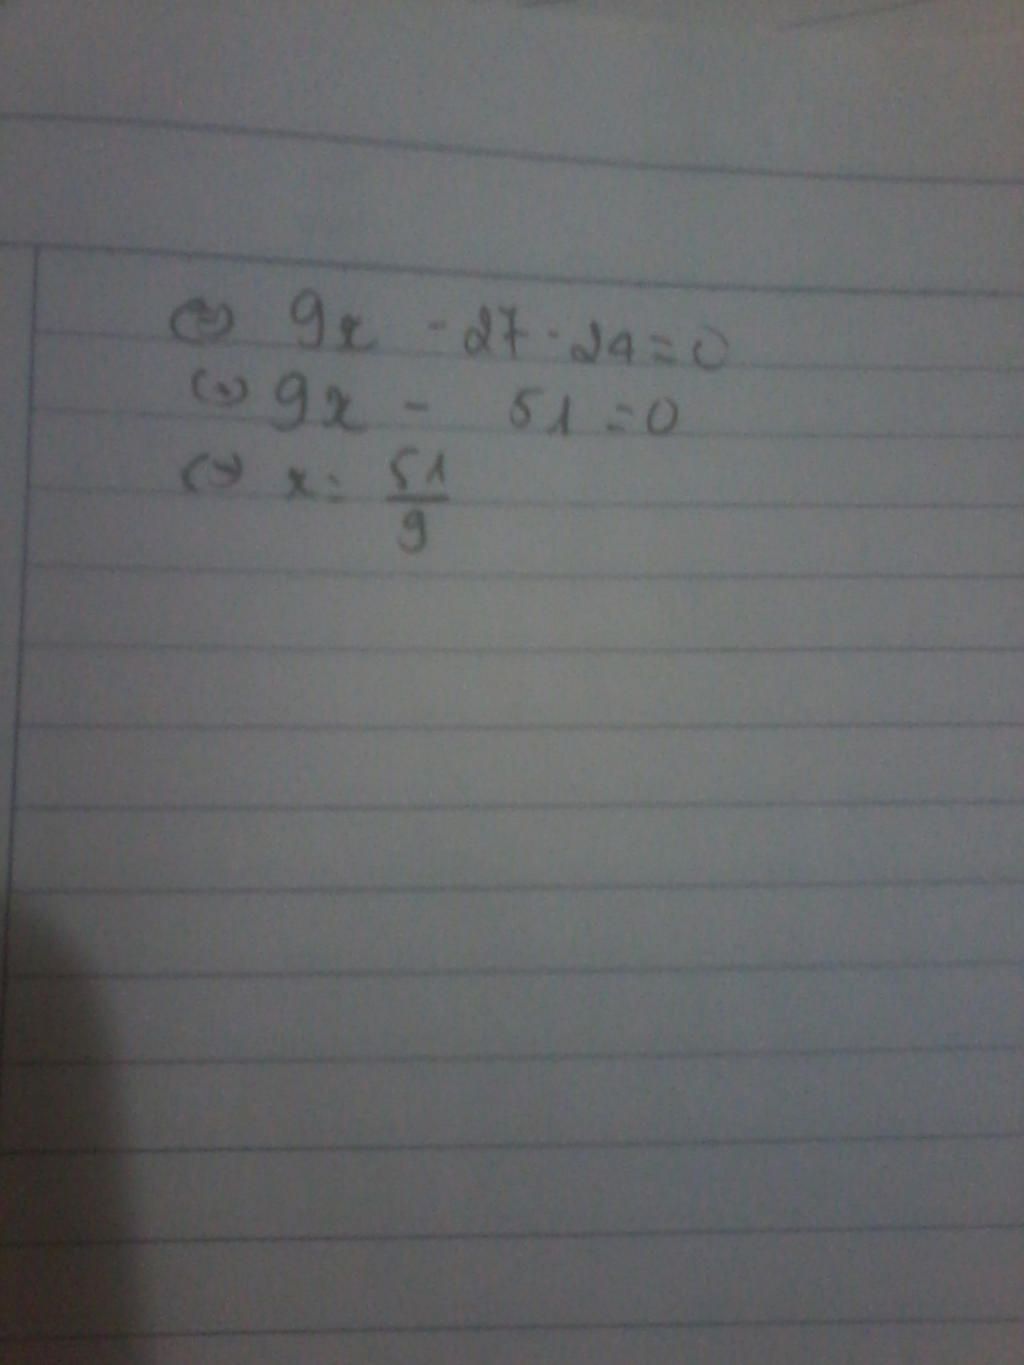 ⇔ 9x - 27 - 24 = 0
⇔ 9x - 51 = 0
⇔ x = 51/9